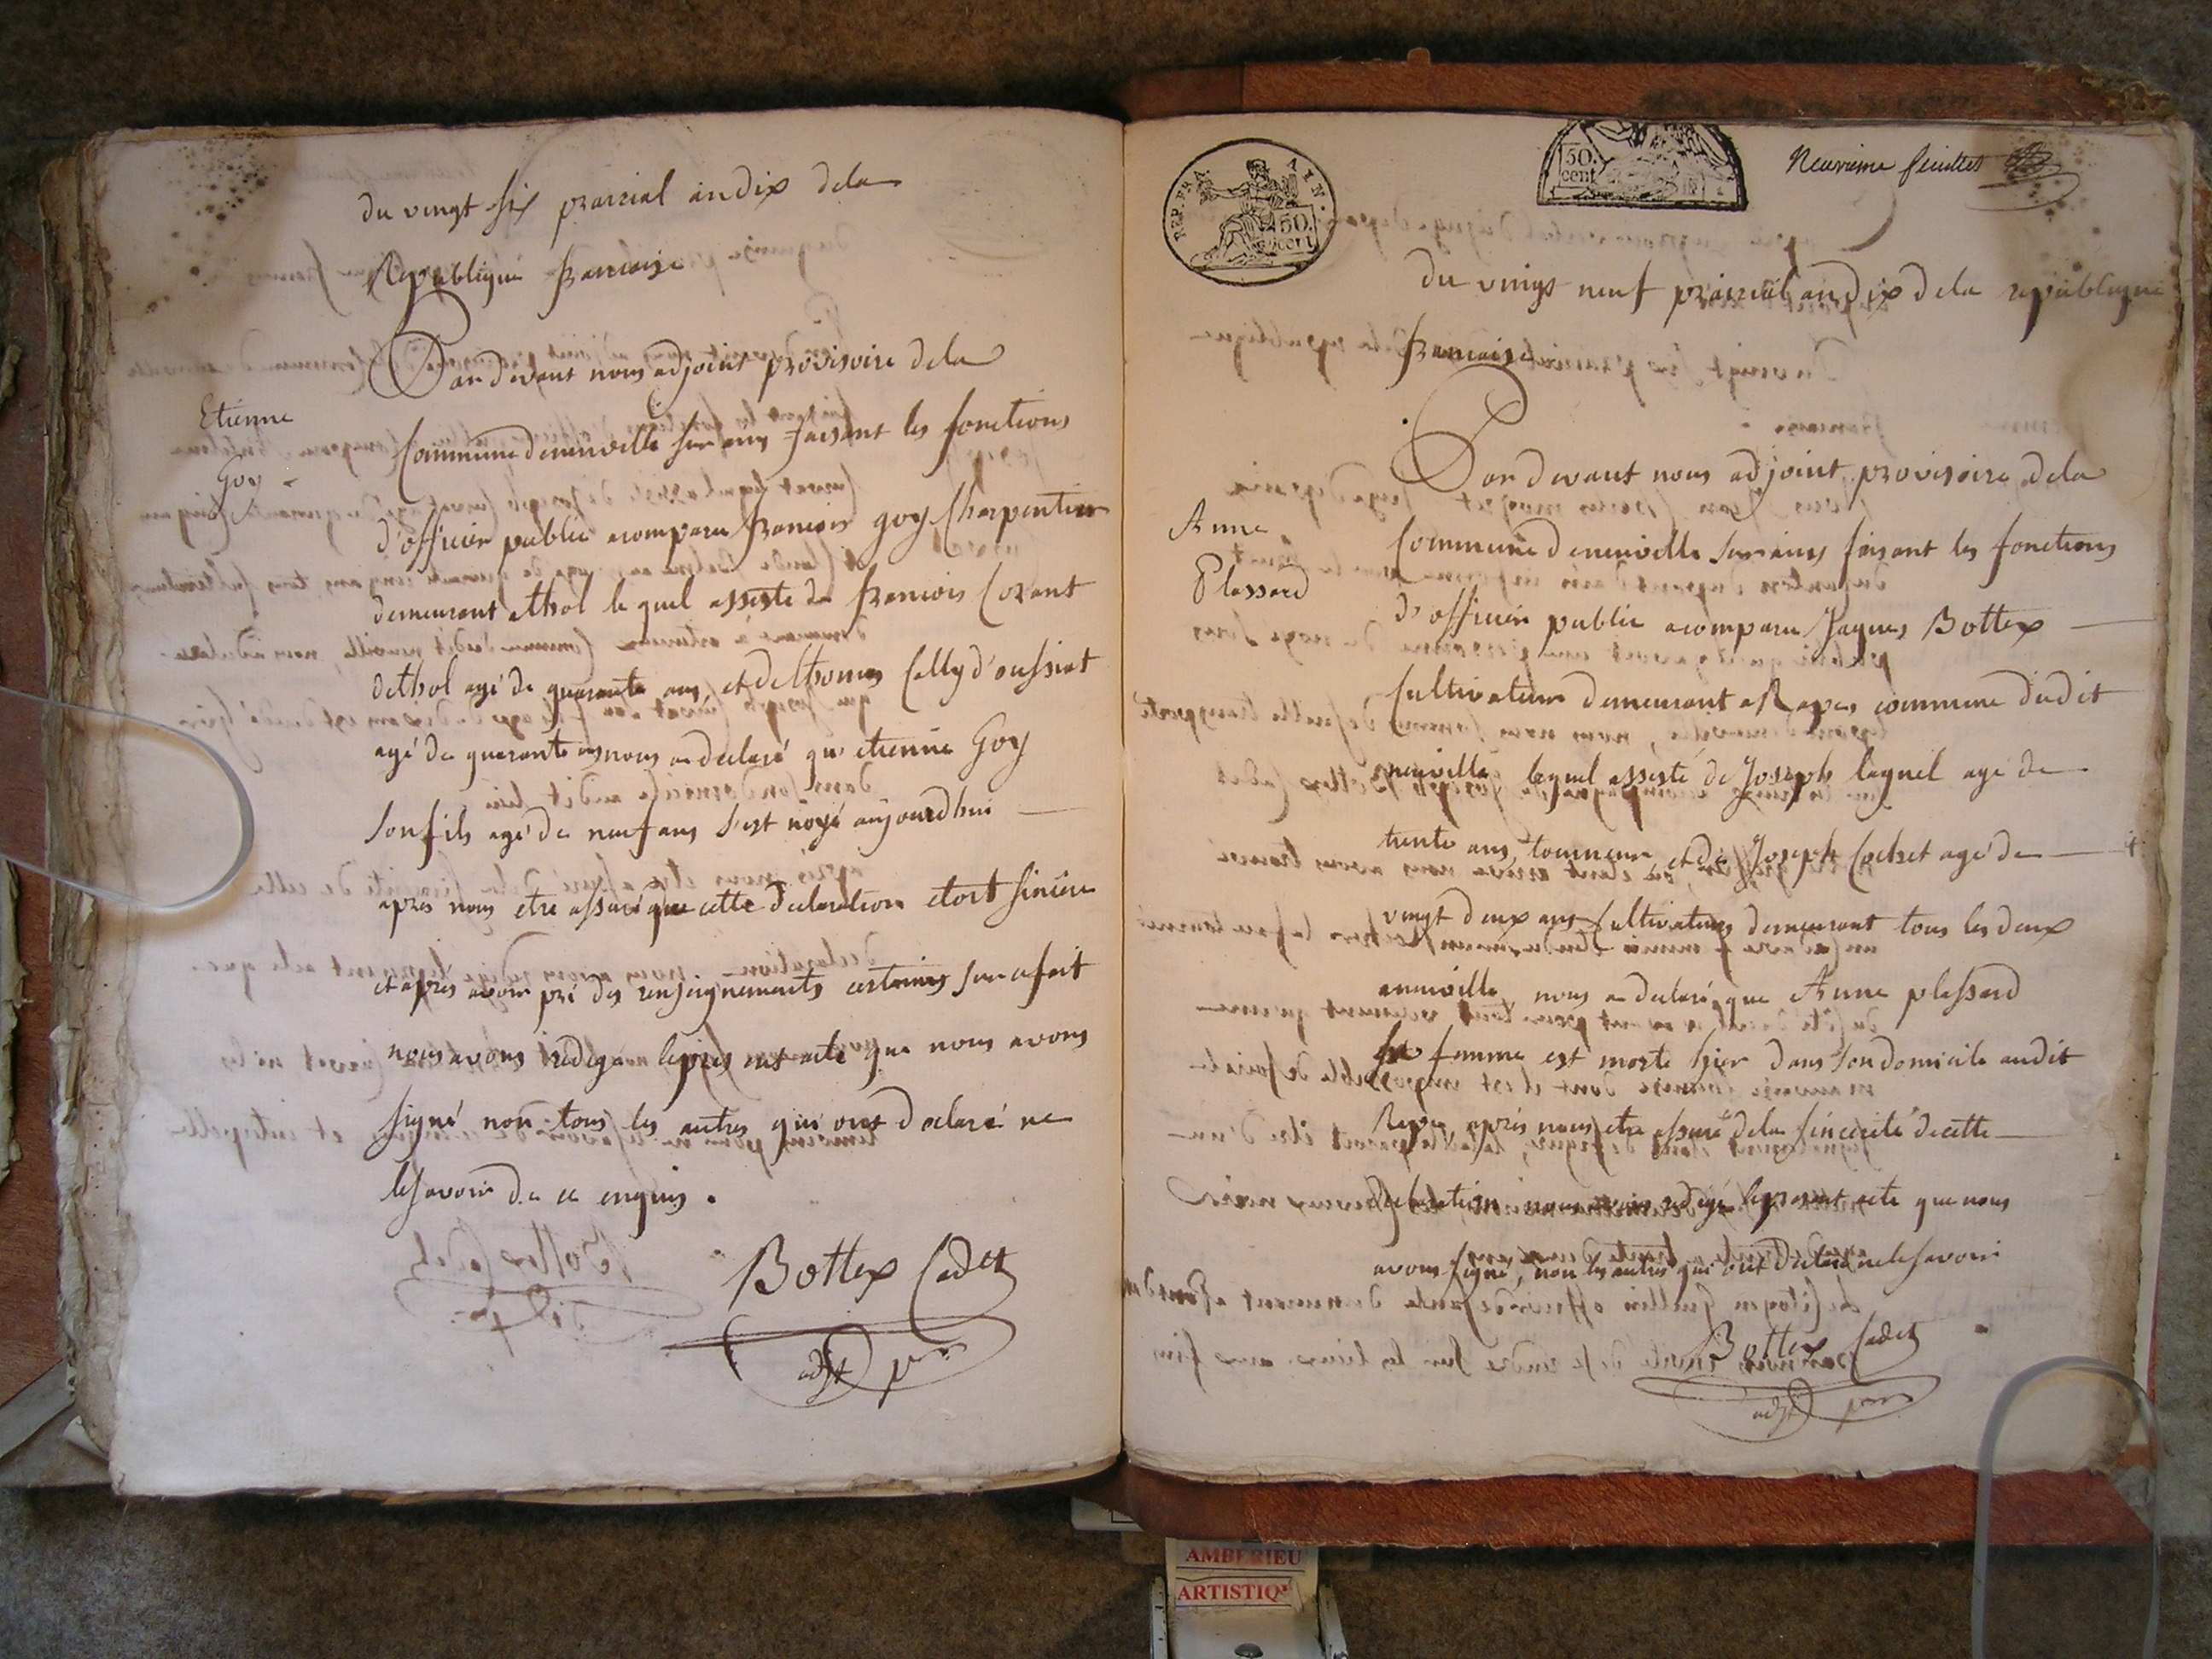 du vingt six prairial an dix dela
Republique francaise
Par devant nous adjoint provisoire dela
Etienne
Goy
Commune deneuville sur ain faisant les fonctions
d'officier public acomparu francois goy Charpentier
demeurant athol le quel assisté de francois Corant
dethol agé de quarante ans, et de thomas Celly d'oussiat
agé de quarante ans nous a declaré que etienne Goy
Son fils agé de neuf ans s'est noyé aujourdhui
après nous etre assuré que cette declaration etoit sincere
et après avoir pri des renseignements certains sur ce fait
nous avons redigé le présent acte que nous avons
signé non tous les autres qui ont declaré ne
le savoir de ce enquis.
Bottex Cadet
adjt pre
REP. FRA. AIN.
50. cent
50. cent
Neuvieme feuillet
du vingt neuf prairial an dix dela republique
francaise
Par devant nous adjoint provisoire dela
Anne
Plassard
Commune deneuville sur ains faisant les fonctions
d'officier public acomparu Jaques Bottex
Cultivateur demeurant a Rapes commune dudit
neuville lequel assisté de Joseph laguel agé de
trente ans, tourneur, et de Joseph Cochet agé de
vingt deux ans Cultivateur demeurant tous les deux
aneuville nous a declaré que Anne plassard
sa femme est morte hier dans son domicile audit
Rape après nous etre assuré dela sincerité decette
declaration nous avons redigé le present acte que nous
avons signé, non les autres qui ont declaré ne le savoir
Bottex Cadet
adjt pre
AMBERIEU
ARTISTIQ